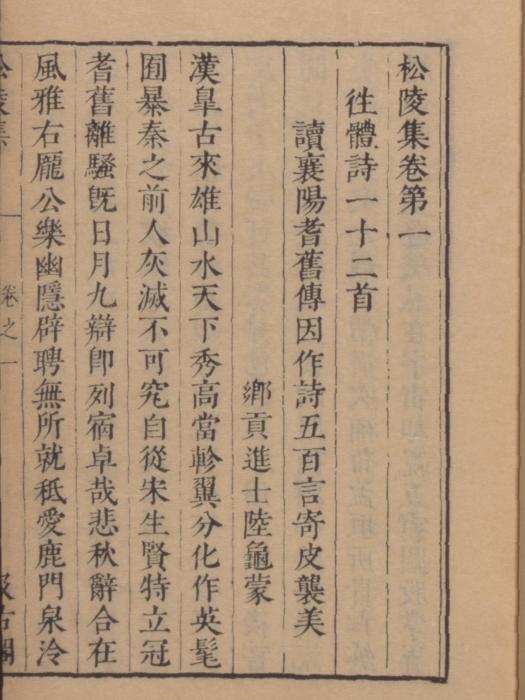 松陵集卷第一
徃體詩一十二首
讀襄陽耆舊傳因作詩五百言寄皮襲美
鄉貢進士陸龜蒙
漢臯古來雄山水天下秀高當軫翼分化作英髦
囿暴秦之前人灰滅不可究自從宋生賢特立冠
耆舊離騷旣日月九辯卽列宿卓哉悲秋辭合在
風雅右龐公樂幽隱辟聘無所就秪愛鹿門泉泠
卷之一